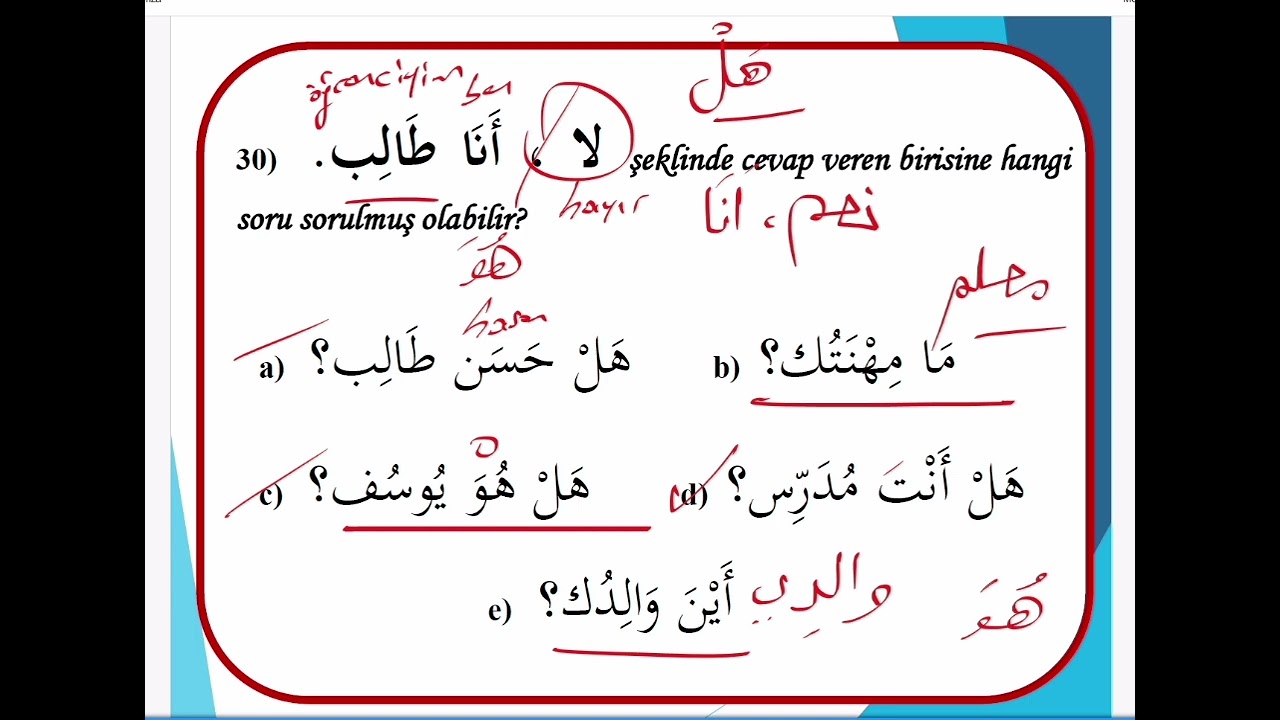 هَلْ
öğrenciyim ben
30) لا ، أَنَا طَالِب. şeklinde cevap veren birisine hangi
hayır
نعم، أنَا
soru sorulmuş olabilir?
هُوَ
معلم
hasan
a) هَلْ حَسَن طَالِب؟
b) مَا مِهْنَتُك؟
c) هَلْ هُوَ يُوسُف؟
o
d) هَلْ أَنْتَ مُدَرِّس؟
e) أَيْنَ وَالِدُك؟
والدي
هُوَ